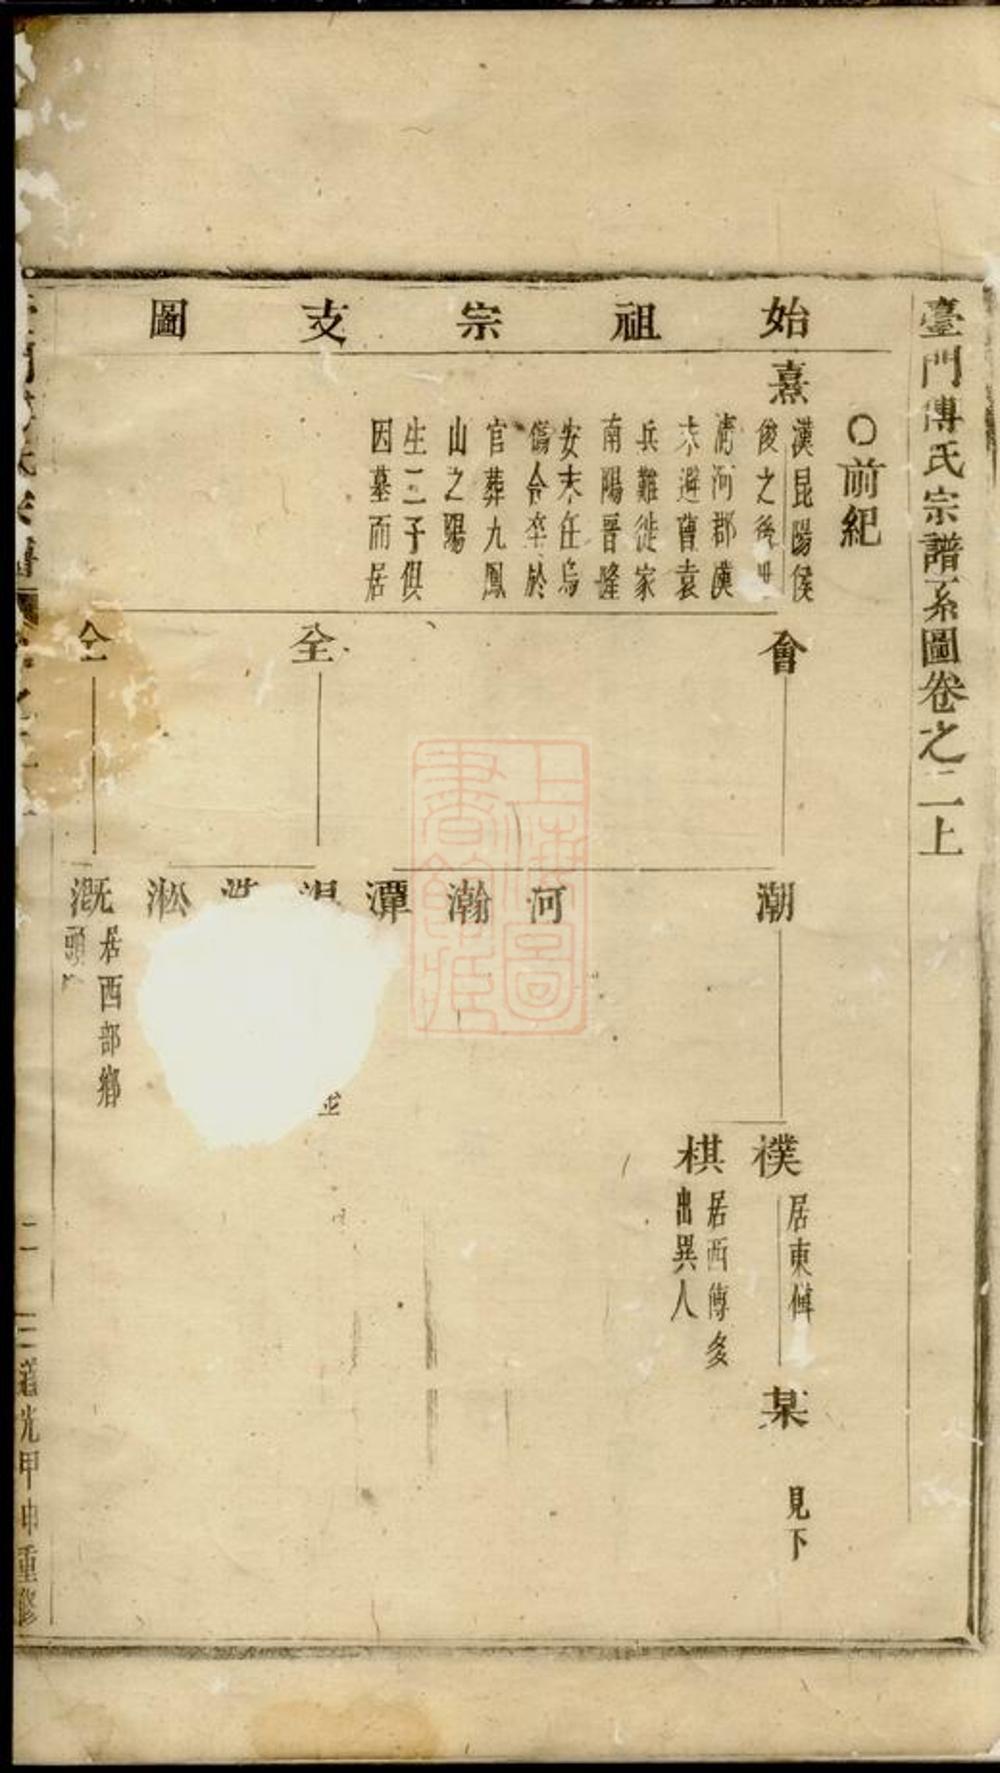 臺門傅氏宗譜系圖卷之二上
〇前紀
始祖宗支圖
熹
漢昆陽侯
俊之後世
清河郡漢
末避曹袁
兵難徙家
南陽晋隆
安末任烏
傷令卒於
官葬九鳳
山之陽
生三子俱
因墓而居
會
全
仝
潮
河
瀚
潭
淞
溉
居西部鄉
頭
樸
居東傅
棋
居西傅多
出異人
某
見下
上海圖書館藏
二
道光甲申重修